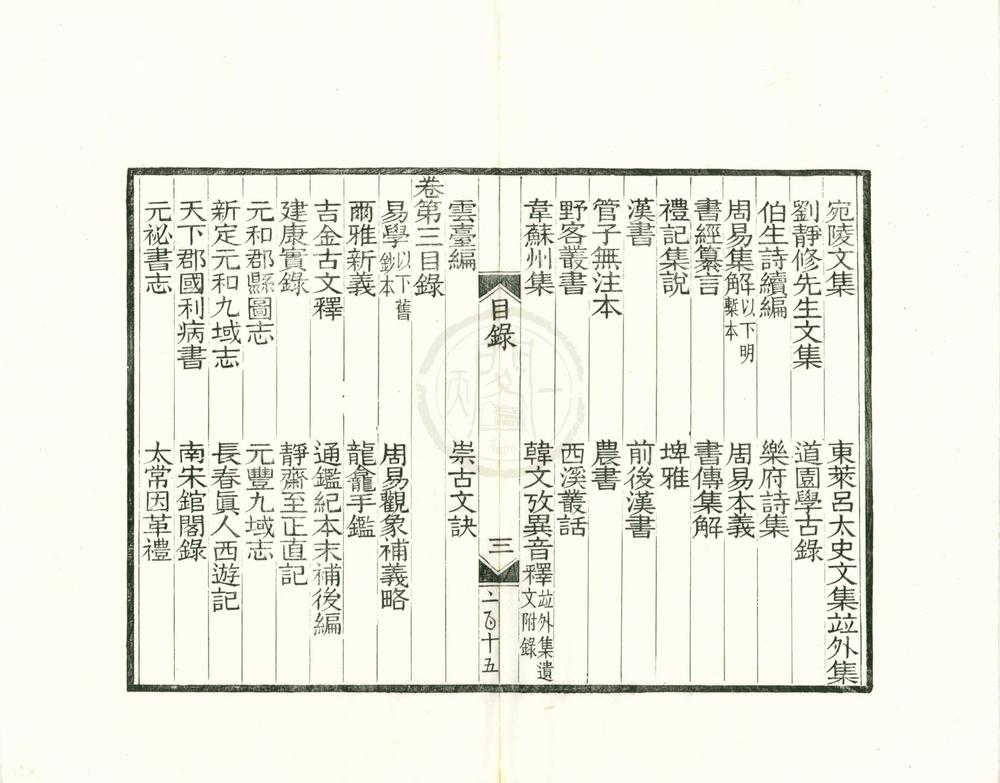 宛陵文集　東萊呂太史文集竝外集
劉靜修先生文集　道園學古錄
伯生詩續編　樂府詩集
周易集解以下明槧本　周易本義
書經纂言　書傳集解
禮記集說　埤雅
漢書　前後漢書
管子無注本　農書
野客叢書　西溪叢話
韋蘇州集　韓文攷異音釋竝外集遺文附錄
目錄　三　二百十五
雲臺編　崇古文訣
卷第三目錄
易學以下舊鈔本　周易觀象補義略
爾雅新義　龍龕手鑑
吉金古文釋　通鑑紀本末補後編
建康實錄　靜齋至正直記
元和郡縣圖志　元豐九域志
新定元和九域志　長春眞人西遊記
天下郡國利病書　南宋館閣錄
元祕書志　太常因革禮